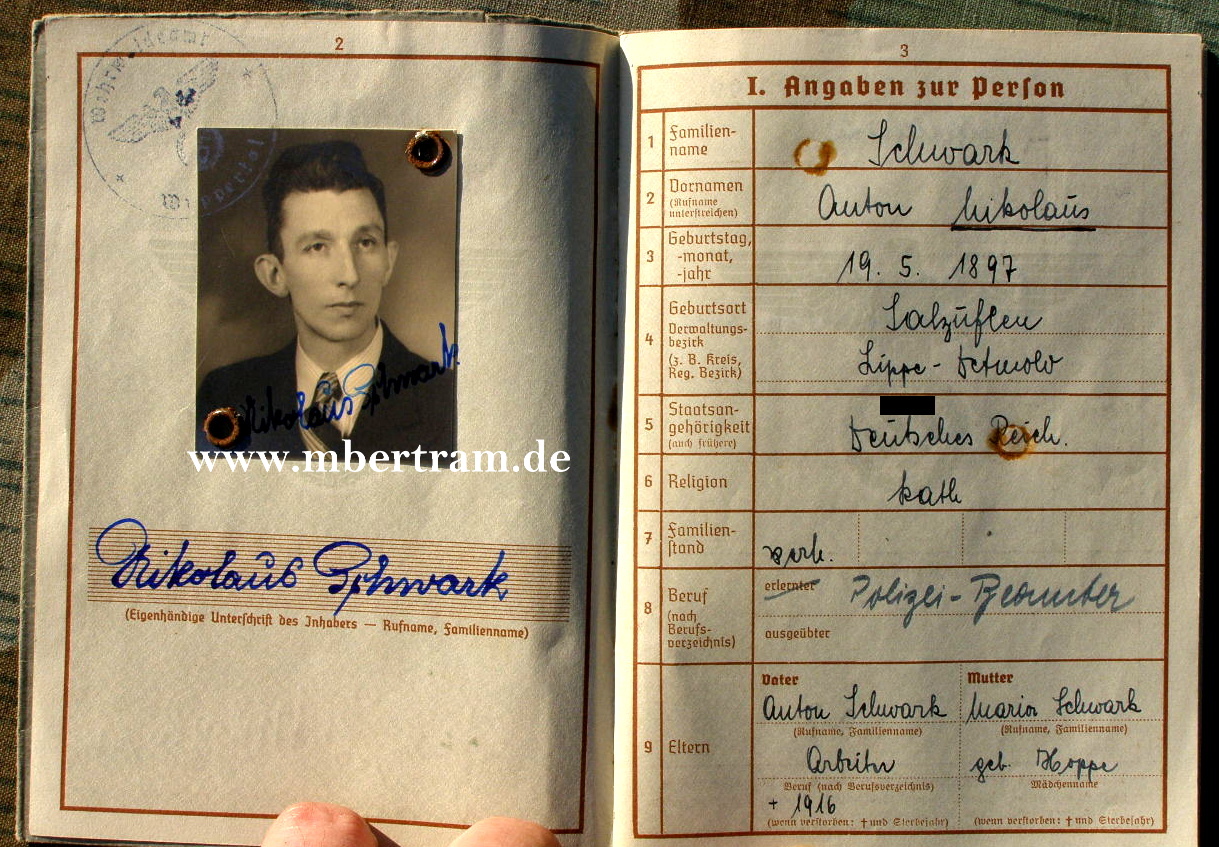 2
Wehrmeldeamt
Wuppertal
Nikolaus Schwark
www.mbertram.de
Nikolaus Schwark
(Eigenhändige Unterschrift des Inhabers — Rufname, Familienname)
3
I. Angaben zur Person
1 Familien-
name
Schwark
2 Vornamen
(Rufname
unterstreichen)
Anton Nikolaus
3 Geburtstag,
-monat,
-jahr
19. 5. 1897
4 Geburtsort
Verwaltungs-
bezirk
(z. B. Kreis,
Reg. Bezirk)
Salzuflen
Lippe-Detmold
5 Staatsan-
gehörigkeit
(auch frühere)
Deutsches Reich.
6 Religion
kath
7 Familien-
stand
verh.
8 Beruf
(nach
Berufs-
verzeichnis)
erlernter Polizei-Beamter
ausgeübter
9 Eltern
Vater
Anton Schwark
(Rufname, Familienname)
Arbeiter
Beruf (nach Berufsverzeichnis)
+ 1916
(wenn verstorben: † und Sterbejahr)
Mutter
Maria Schwark
(Rufname, Familienname)
geb. Hoppe
Mädchenname
(wenn verstorben: † und Sterbejahr)